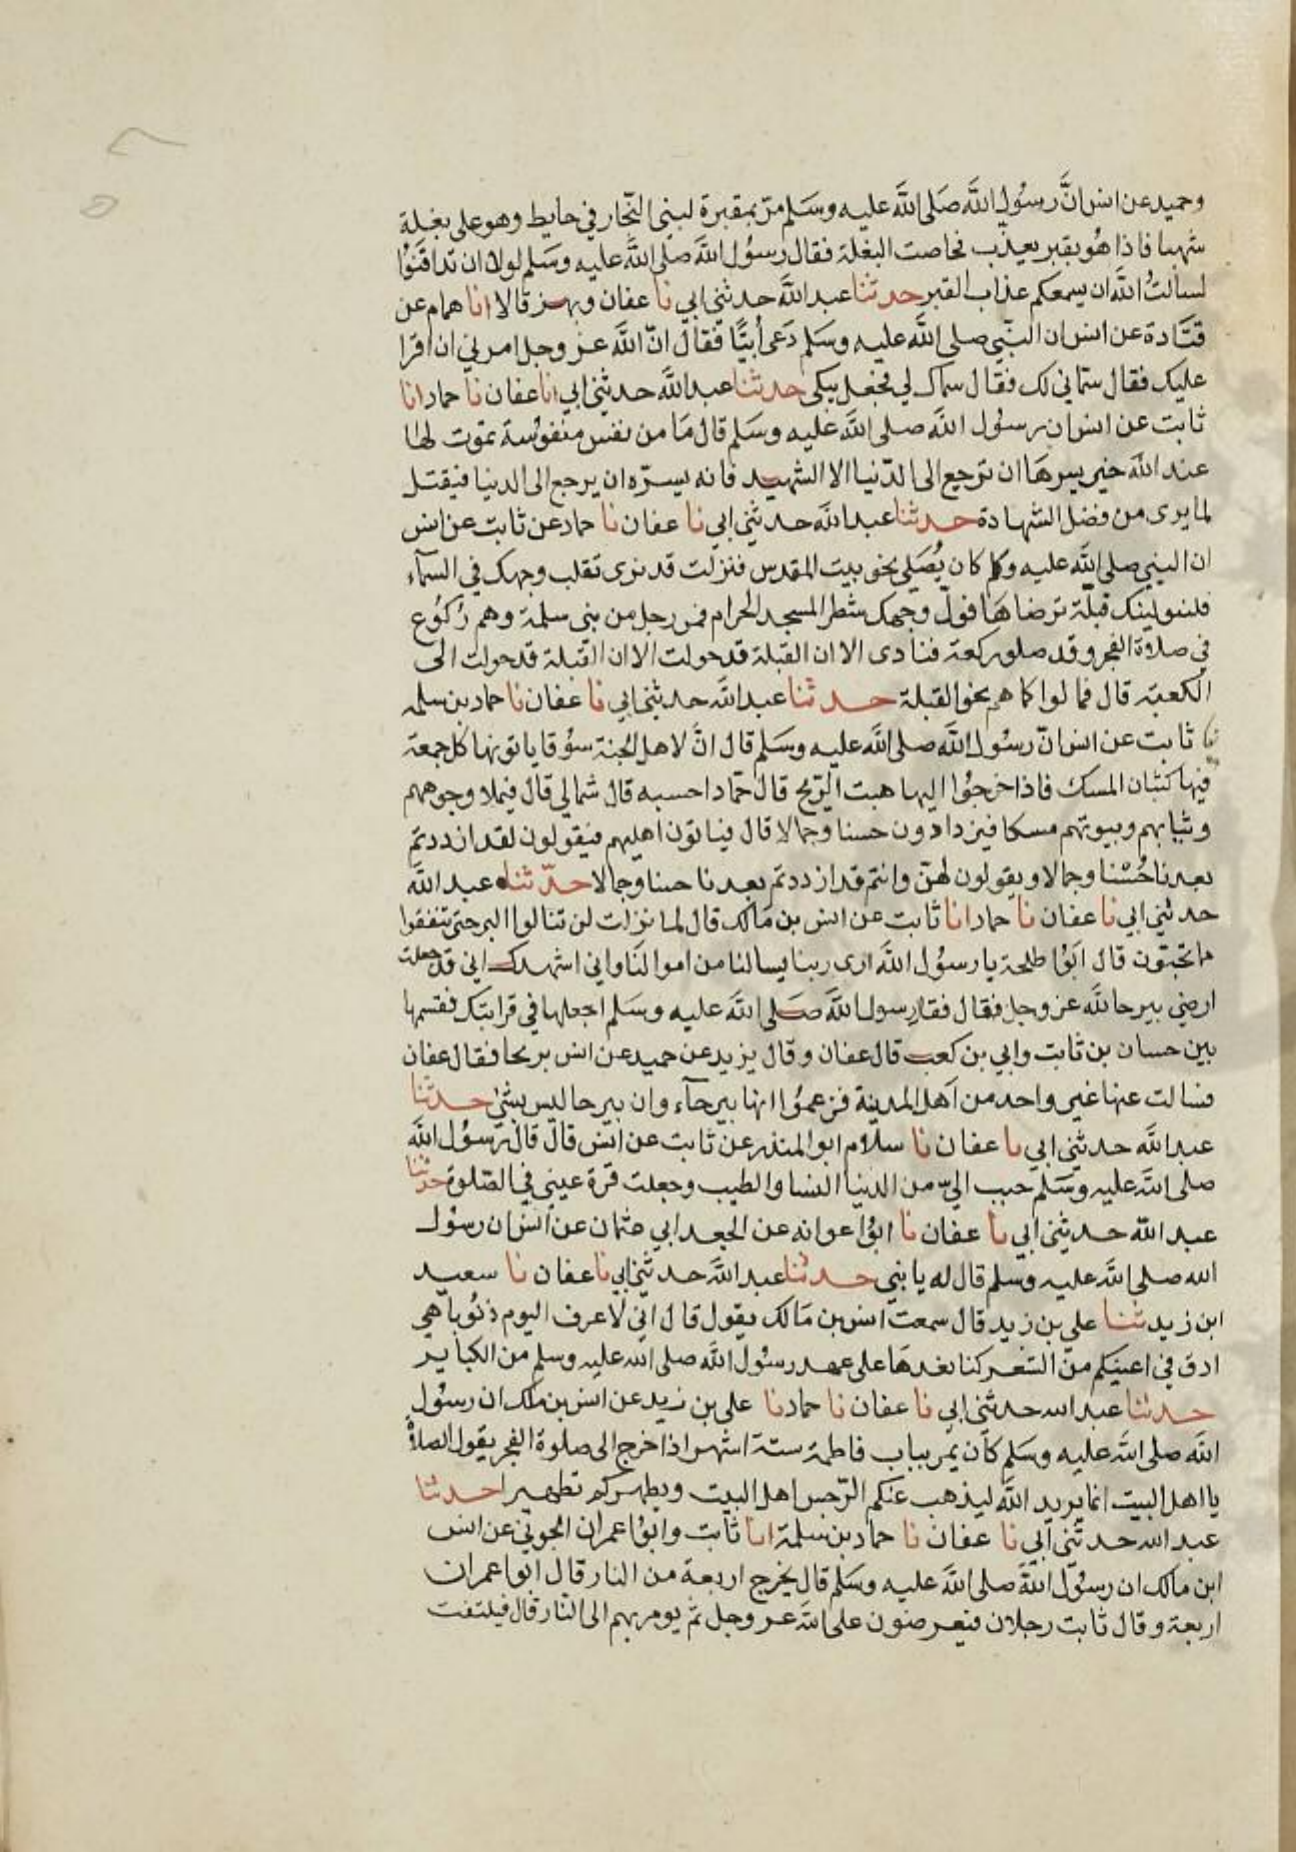 وحميد عن انس انَّ رسُول اللَّه صَلى اللَّه عليه وسَلم مرّ بمقبرة لبنى النّجار في حايط وهو على بغلة
شهبا فاذا هُو بقبر يعذّب فحاصت البغلة فقال رسُول اللَّه صلى اللَّه عليه وسَلم لولا ان تدافَنُوا
لسالتُ اللَّه ان يسمعكم عذاب القبر حدثنا عبد اللَّه حدثنى ابي نا عفان وبهز قالا انا همام عن
قتَّادة عن انس ان النّبي صلى اللَّه عليه وسَلم دَعى أبَيًّا فقال انّ اللَّه عز وجل امرني ان اقرا
عليك فقال سمّاني لك فقال سماك لي فجعل يبكى حدثنا عبد اللَّه حدثنى ابي انا عفان نا حماد انا
ثابت عن انس ان رسُول اللَّه صلى اللَّه عليه وسَلم قال مَا من نفس منفوسة تموت لها
عند اللَّه خير يسرهَا ان ترجع الى الدّنيا الا الشهيد فانه يسرّه ان يرجع الى الدنيا فيقتل
لما يرى من فضل الشهادة حدثنا عبد اللَّه حدثني ابي نا عفان نا حماد عن ثابت عن انس
ان النبي صلى اللَّه عليه وسلم كان يُصَلي نحو بيت المقدس فنزلت قد نرى تقلب وجهك في السمآء
فلنولينك قبلّة ترضاهَا فولّ وجهك شطر المسجد الحرام فمر رجل من بنى سلمة وهم ركُوع
في صلاة الفجر وقد صلو ركعة فنادى الا ان القبلة قد حولت الا ان القبلة قد حولت الى
الكعبة قال فمالوا كما هم نحو القبلة حدثنا عبد اللَّه حدثنى ابي نا عفان نا حماد بن سلمه
ثابت عن انس انّ رسُول اللَّه صلى اللَّه عليه وسَلم قال انَّ لاهل الجنة سُوقا ياتونها كل جمعة
فيها كثبان المسك فاذا خرجُوا اليها هبت الرّيح قال حمّاد احسبه قال شمالي قال فيملا وجوههم
وثيابهم وبيوتهم مسكا فيزدادون حسنا وجمالا قال فياتون اهليهم فيقولون لقد ازددتم
بعدنا حُسْنا وجمالا ويقولون لهنّ وانتم قد ازددتم بعدنا حسنا وجمالا حدّثنا عبد اللَّه
حدثني ابي نا عفان نا حماد انا ثابت عن انس بن مَالك قال لما نزلت لن تنالوا البر حتى تنفقوا
مما تحبّون قال ابُوا طلحة يا رسُول اللَّه ارى ربنا يسالنا من اموالنَا واني اشهدك اني قد جعلت
ارضي بيرحا للَّه عز وجل فقال فقال رسول اللَّه صَلى اللَّه عليه وسَلم اجعلها في قرابتك فقسمها
بين حسان بن ثابت وابي بن كعب قال عفان وقال يزيد عن حميد عن انس بريحا فقال عفان
فسالت عنها غير واحد من اَهل المدينة فزعمُوا انها بيرحآء وان بيرحا ليس بشئ حدثنا
عبد اللَّه حدثنى ابي نا عفان نا سلّام ابو المنذر عن ثابت عن انس قال قال رسُول اللَّه
صلى اللَّه عليه وسَلم حبب اليّ من الدنيا النسا والطيب وجعلت قرة عيني في الصّلوة حدثنا
عبد اللَّه حدثنى ابي نا عفان نا ابُوا عوانه عن الجعد ابي عثمان عن انس ان رسُول
الله صلى اللَّه عليه وسلم قال له يا بني حدثنا عبد اللَّه حدثني ابي نا عفان نا سعيد
ابن زيد ثنا علي بن زيد قال سمعت انس بن مَالك يقول قال اني لاعرف اليوم ذنُوبا هي
ادق في اعينكم من الشعر كنا نعدهَا على عهد رسُول اللَّه صلى الله عليه وسلم من الكباير
حدثنا عبد الله حدثنى ابي نا عفان نا حماد نا على بن زيد عن انس بن ملك ان رسُول
اللَّه صلى اللَّه عليه وسَلم كان يمر بباب فاطمة ستة اشهر اذا خرج الى صلوة الفجر يقول الصلاة
يا اهل البيت انما يريد اللَّه ليذهب عنكم الرّجس اهل البيت ويطهركم تطهيرا حدثنا
عبد الله حدثنى ابي نا عفان نا حماد بن سلمة انا ثابت وابُوا عمران الجوني عن انس
ابن مالك ان رسُول اللَّه صلى اللَّه عليه وسَلم قال يخرج اربعة من النار قال ابوا عمران
اربعة وقال ثابت رجلان فيعرضون على اللَّه عز وجل ثم يومر بهم الى النّار قال فيلتفت